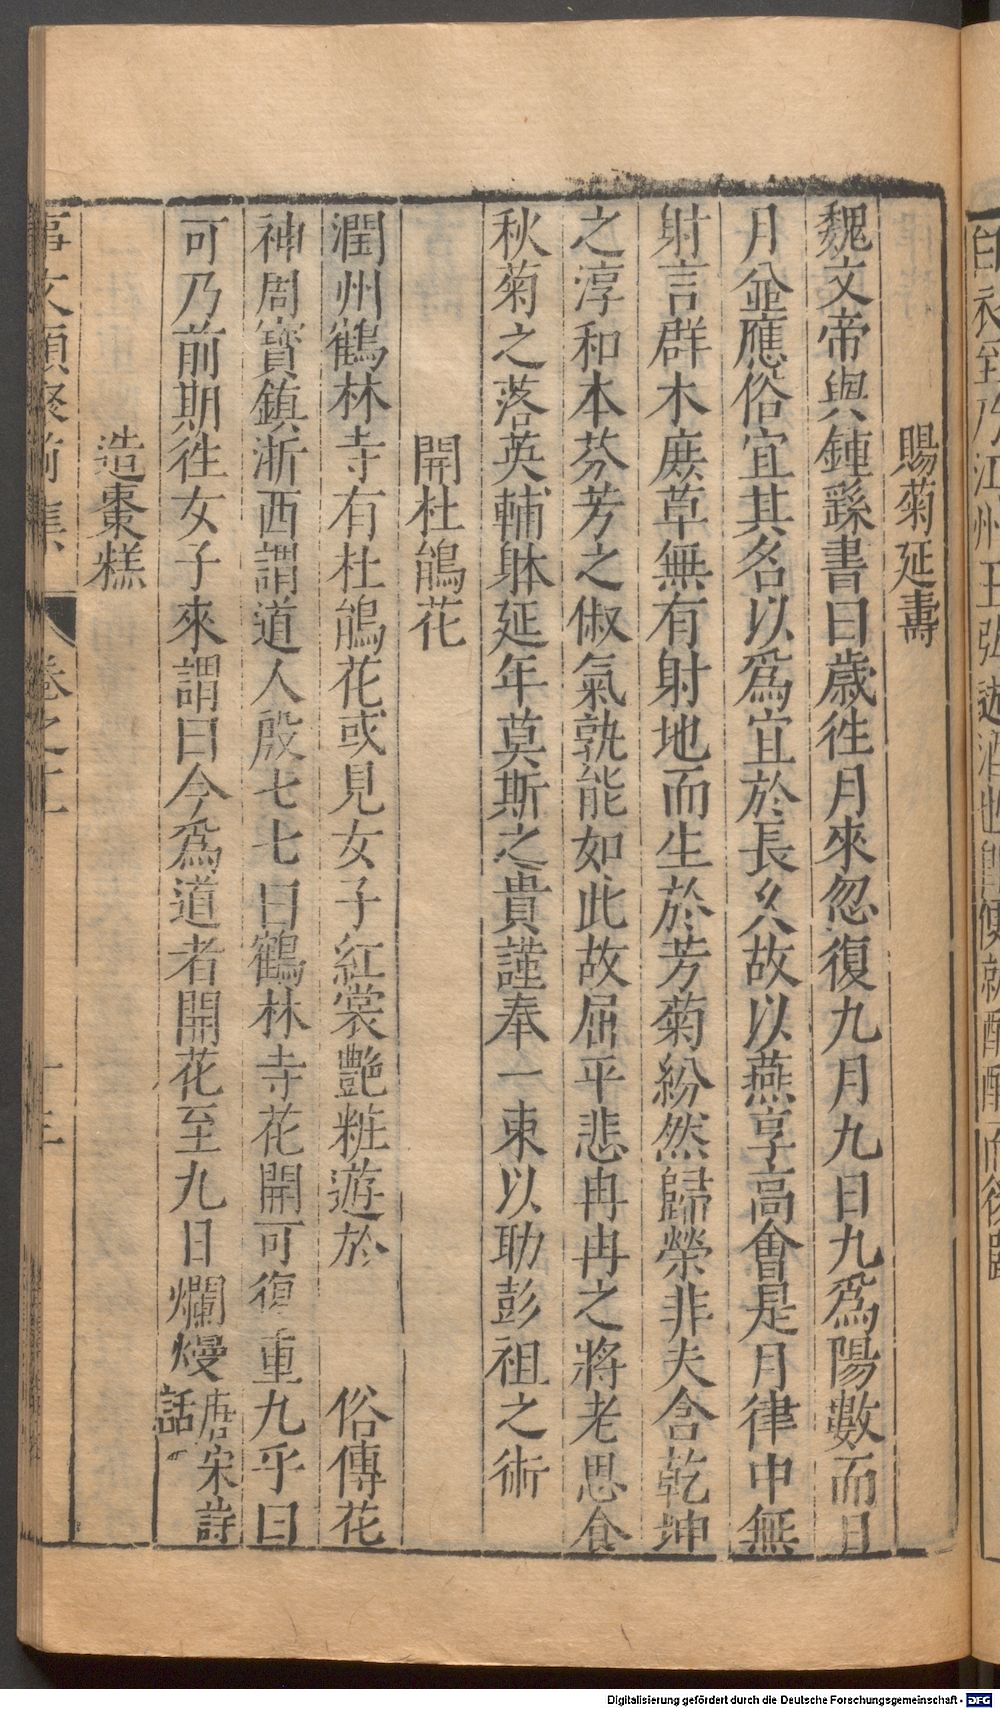 賜菊延壽
魏文帝與鍾繇書曰歲徃月來忽復九月九日九爲陽數而日
月並應俗宜其名以爲宜於長久故以燕享高會是月律中無
射言群木庶草無有射地而生於芳菊紛然歸榮非夫含乾坤
之淳和本芬芳之俶氣孰能如此故屈平悲冉冉之將老思食
秋菊之落英輔躰延年莫斯之貴謹奉一束以助彭祖之術
開杜鵑花
潤州鶴林寺有杜鵑花或見女子紅裳艷粧遊於 俗傳花
神周寳鎮浙西謂道人殷七七曰鶴林寺花開可復重九乎曰
可乃前期徃女子來謂曰今爲道者開花至九日爛熳唐宋詩話
造棗糕
事文類聚前集 卷之十
Digitalisierung gefördert durch die Deutsche Forschungsgemeinschaft - DFG